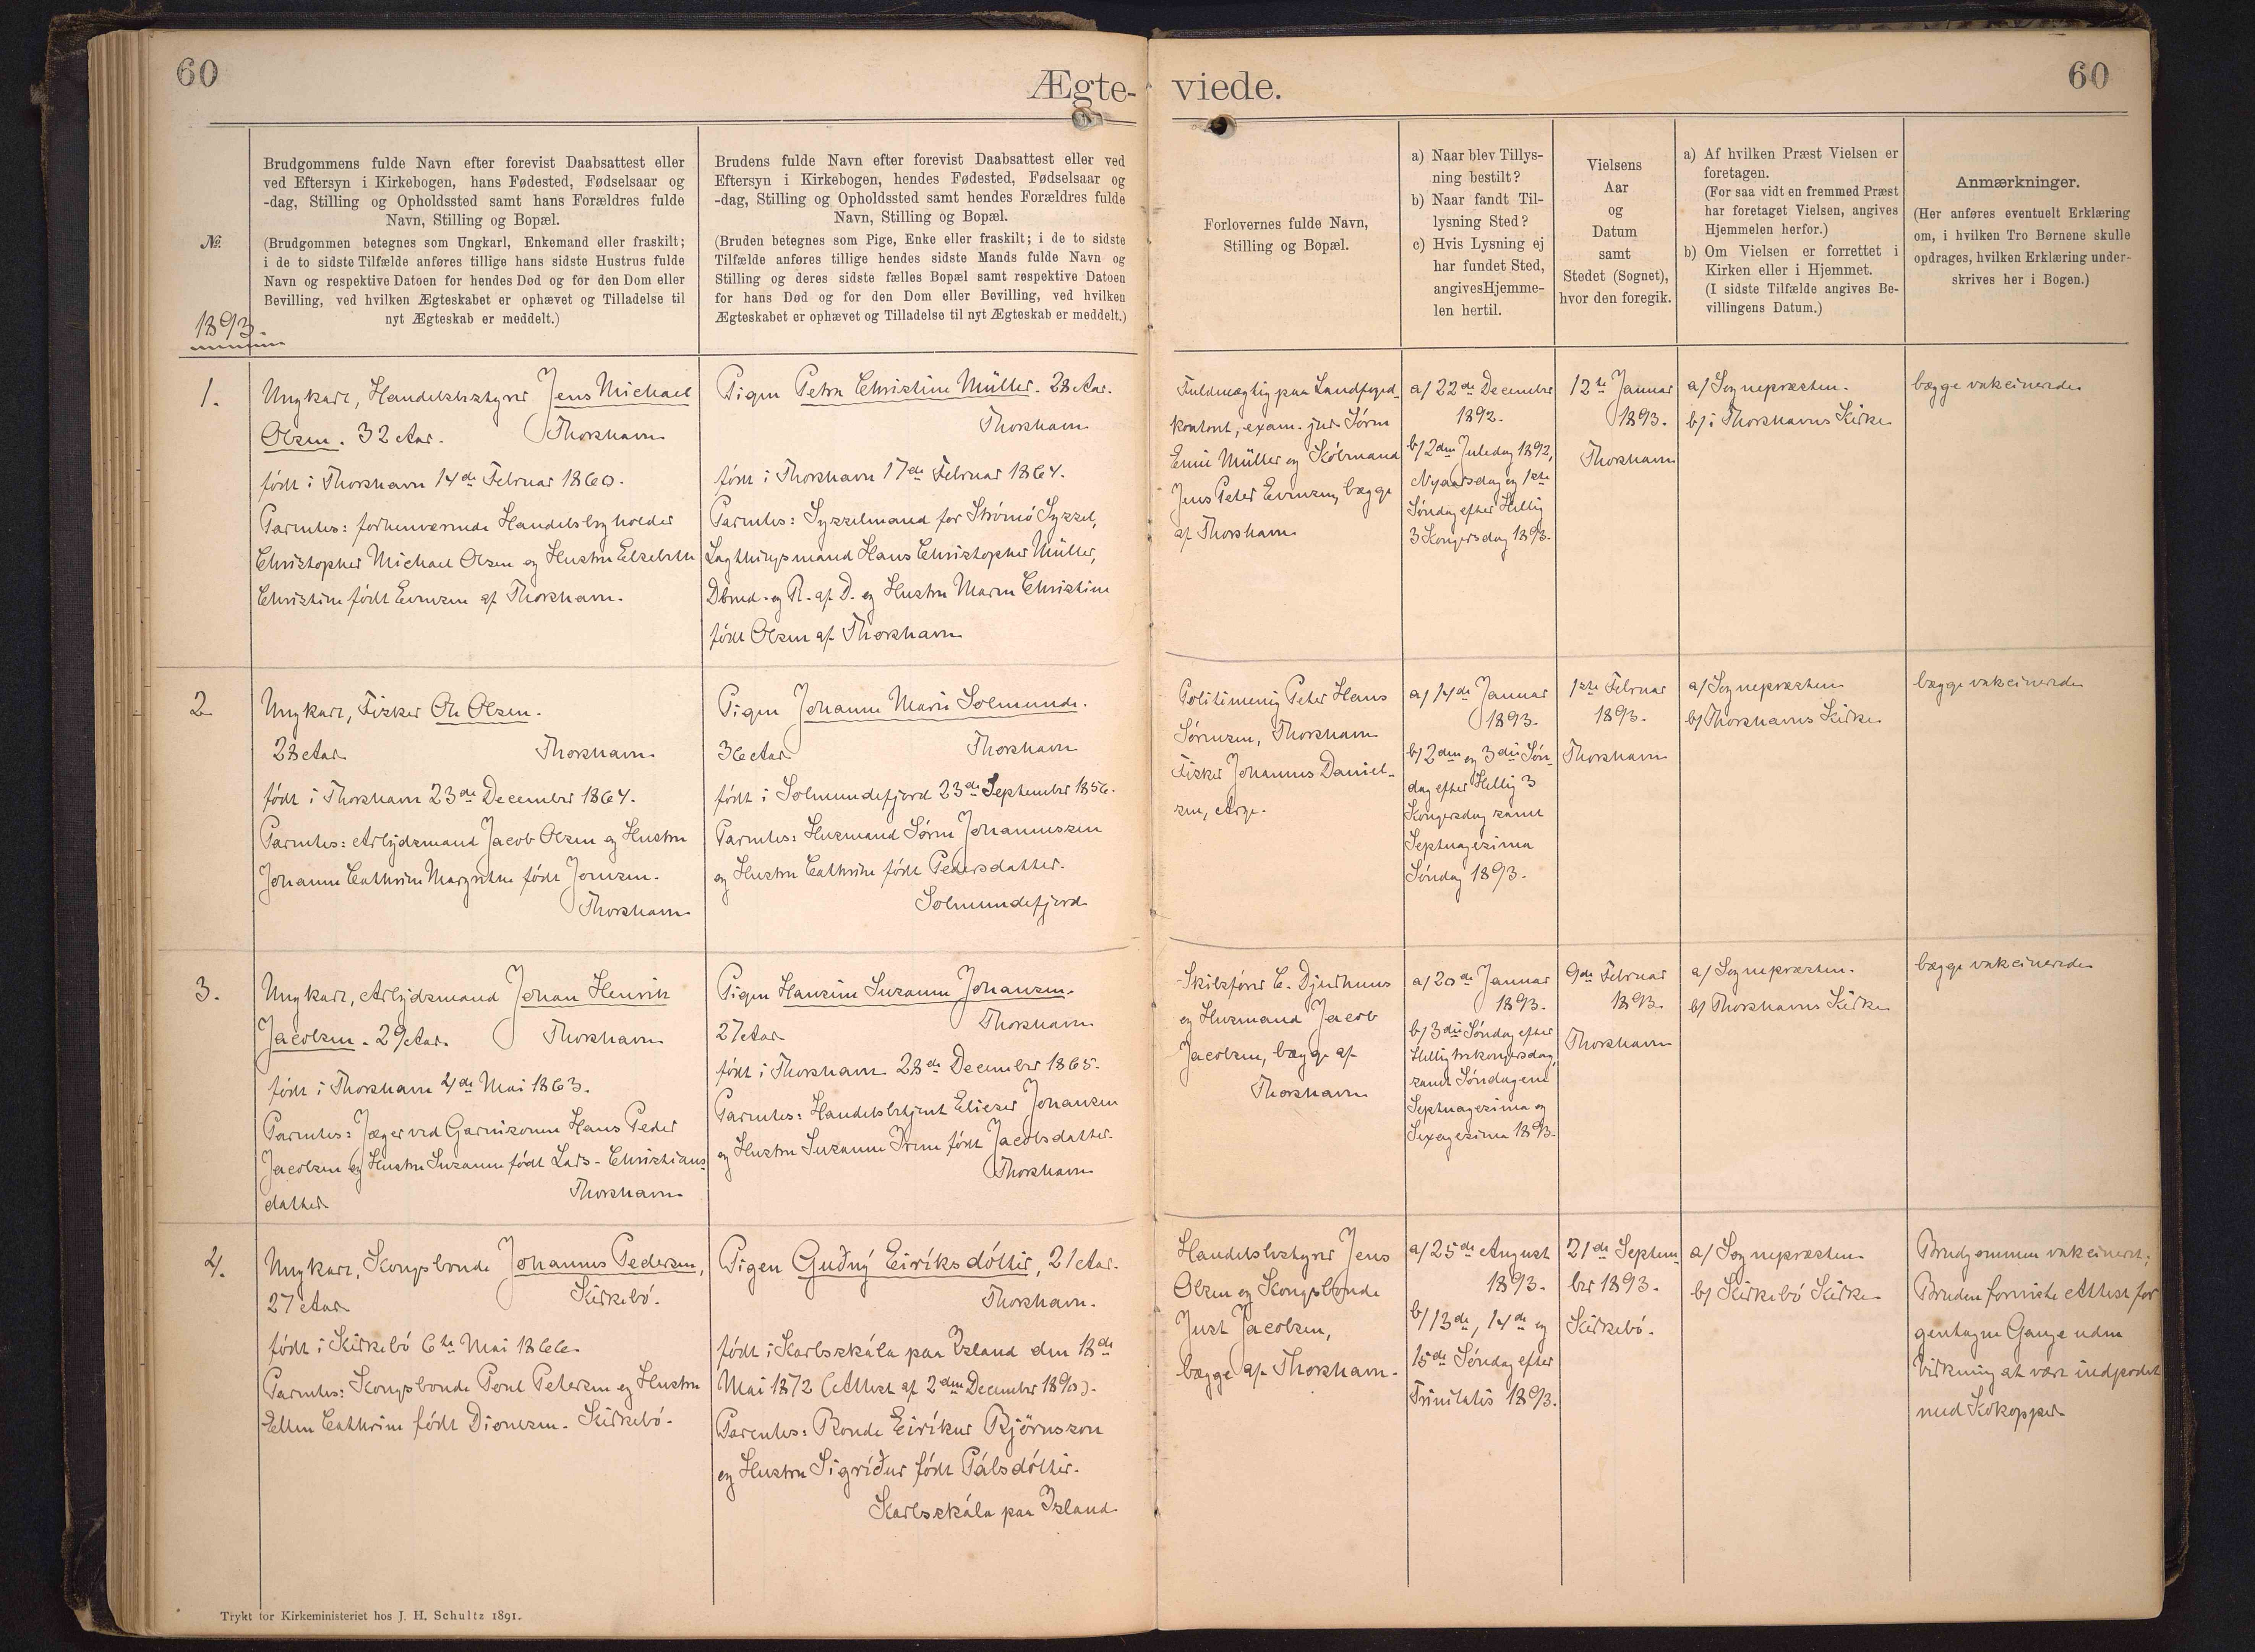 60
Ægte-
viede.
60
No.
Brudgommens fulde Navn efter forevist Daabsattest eller
ved Eftersyn i Kirkebogen, hans Fødested, Fødselsaar og
-dag, Stilling og Opholdssted samt hans Forældres fulde
Navn, Stilling og Bopæl.
(Brudgommen betegnes som Ungkarl, Enkemand eller fraskilt;
i de to sidste Tilfælde anføres tillige hans sidste Hustrus fulde
Navn og respektive Datoen for hendes Død og for den Dom eller
Bevilling, ved hvilken Ægteskabet er ophævet og Tilladelse til
nyt Ægteskab er meddelt.)
Brudens fulde Navn efter forevist Daabsattest eller ved
Eftersyn i Kirkebogen, hendes Fødested, Fødselsaar og
-dag, Stilling og Opholdssted samt hendes Forældres fulde
Navn, Stilling og Bopæl.
(Bruden betegnes som Pige, Enke eller fraskilt; i de to sidste
Tilfælde anføres tillige hendes sidste Mands fulde Navn og
Stilling og deres sidste fælles Bopæl samt respektive Datoen
for hans Død og for den Dom eller Bevilling, ved hvilken
Ægteskabet er ophævet og Tilladelse til nyt Ægteskab er meddelt.)
Forlovernes fulde Navn,
Stilling og Bopæl.
a) Naar blev Tillys-
ning bestilt?
b) Naar fandt Til-
lysning Sted?
c) Hvis Lysning ej
har fundet Sted,
angives Hjemme-
len hertil.
Vielsens
Aar
og
Datum
samt
Stedet (Sognet),
hvor den foregik.
a) Af hvilken Præst Vielsen er
foretagen.
(For saa vidt en fremmed Præst
har foretaget Vielsen, angives
Hjemmelen herfor.)
b) Om Vielsen er forrettet i
Kirken eller i Hjemmet.
(I sidste Tilfælde angives Be-
villingens Datum.)
Anmærkninger.
(Her anføres eventuelt Erklæring
om, i hvilken Tro Børnene skulle
opdrages, hvilken Erklæring under-
skrives her i Bogen.)
1893.
1.
Ungkarl, Handelsbestyrer Jens Michael
Olsen. 32 Aar. Thorshavn
født i Thorshavn 14de Februar 1860.
Parentes: forhenværende Handelsbogholder
Christopher Michael Olsen og Hustru Elsebeth
Christine født Evensen af Thorshavn.
Pigen Petra Christine Müller. 28 Aar.
Thorshavn
født i Thorshavn 17de Februar 1864.
Parentes: Sysselmand for Strømø Syssel,
Lagthingsmand Hans Christopher Müller,
Dbmd. og R. af D. og Hustru Maren Christine
født Olsen af Thorshavn
Fuldmægtig paa Landfoged-
kontoret, exam. jur. Sørен
Emil Müller og Købmand
Jens Peter Evensen, begge
af Thorshavn
a/ 22de December
1892.
b/ 2den Juledag 1892,
Nyaarsdag og 1ste
Søndag efter Hellig
3 Kongersdag 1893.
12te Januar
1893.
Thorshavn
a/ Sognepræsten.
b/ i Thorshavns Kirke
begge vakcinerede
2
Ungkarl, Fisker Ole Olsen.
28 Aar Thorshavn.
født i Thorshavn 23de December 1864.
Parentes: Arbejdsmand Jacob Olsen og Hustru
Johanne Cathrine Margrethe født Joensen.
Thorshavn
Pigen Johanne Marie Solmunde.
36 Aar Thorshavn
født i Solmundefjord 23de September 1856.
Parentes: Husmand Søren Johannessen
og Hustru Cathrine født Pedersdatter.
Solmundefjord
Politimenig Peter Hans
Sørensen, Thorshavn
Fisker Johannes Daniel-
sen, Arge.
a/ 14de Januar
1893.
b/ 2den og 3die Søn-
dag efter Hellig 3
Kongersdag samt
Septuagesima
Søndag 1893.
1ste Februar
1893.
Thorshavn
a/ Sognepræsten
b/ Thorshavns Kirke
begge vakcinerede
3.
Ungkarl, Arbejdsmand Johan Henrik
Jacobsen. 29 Aar. Thorshavn
født i Thorshavn 4de Mai 1863.
Parentes: Jæger ved Garnisonen Hans Peder
Jacobsen og Hustru Susanne født Lars-Christians-
datter Thorshavn
Pigen Hansine Susanne Johansen.
27 Aar Thorshavn
født i Thorshavn 28de December 1865.
Parentes: Handelsbetjent Elieser Johansen
og Hustru Susanne Irene født Jacobsdatter.
Thorshavn
Skibsfører C. Djurhuus
og Husmand Jacob
Jacobsen, begge af
Thorshavn
a/ 20de Januar
1893.
b/ 3die Søndag efter
Hellig trekongersdag,
samt Søndagene
Septuagesima og
Sexagesima 1893.
9de Februar
1893.
Thorshavn
a/ Sognepræsten.
b/ Thorshavns Kirke
begge vakcinerede
4.
Ungkarl, Kongsbonde Johannes Pedersen,
27 Aar Kirkebø.
født i Kirkebø 6te Mai 1866.
Parentes: Kongsbonde Poul Petersen og Hustru
Ellen Cathrine født Dionesen. Kirkebø.
Pigen Guðný Eiríksdóttir, 21 Aar.
Thorshavn.
født i Karlsskála paa Island den 18de
Mai 1872 (Attest af 2den December 1890).
Parentes: Bonde Eiríkur Björnsson
og Hustru Sigríður født Pálsdóttir.
Karlsskála paa Island
Handelsbestyrer Jens
Olsen og Kongsbonde
Just Jacobsen,
begge af Thorshavn.
a/ 25de August
1893.
b/ 13de, 14de og
15de Søndag efter
Trinitatis 1893.
21de Septem-
ber 1893.
Kirkebø.
a/ Sognepræsten
b/ Kirkebø Kirke
Brudgommen vakcineret;
Bruden foreviste Attest for
gentagne Gange uden
Virkning at være indpodet
med Kokopper
Trykt for Kirkeministeriet hos J. H. Schultz 1891.